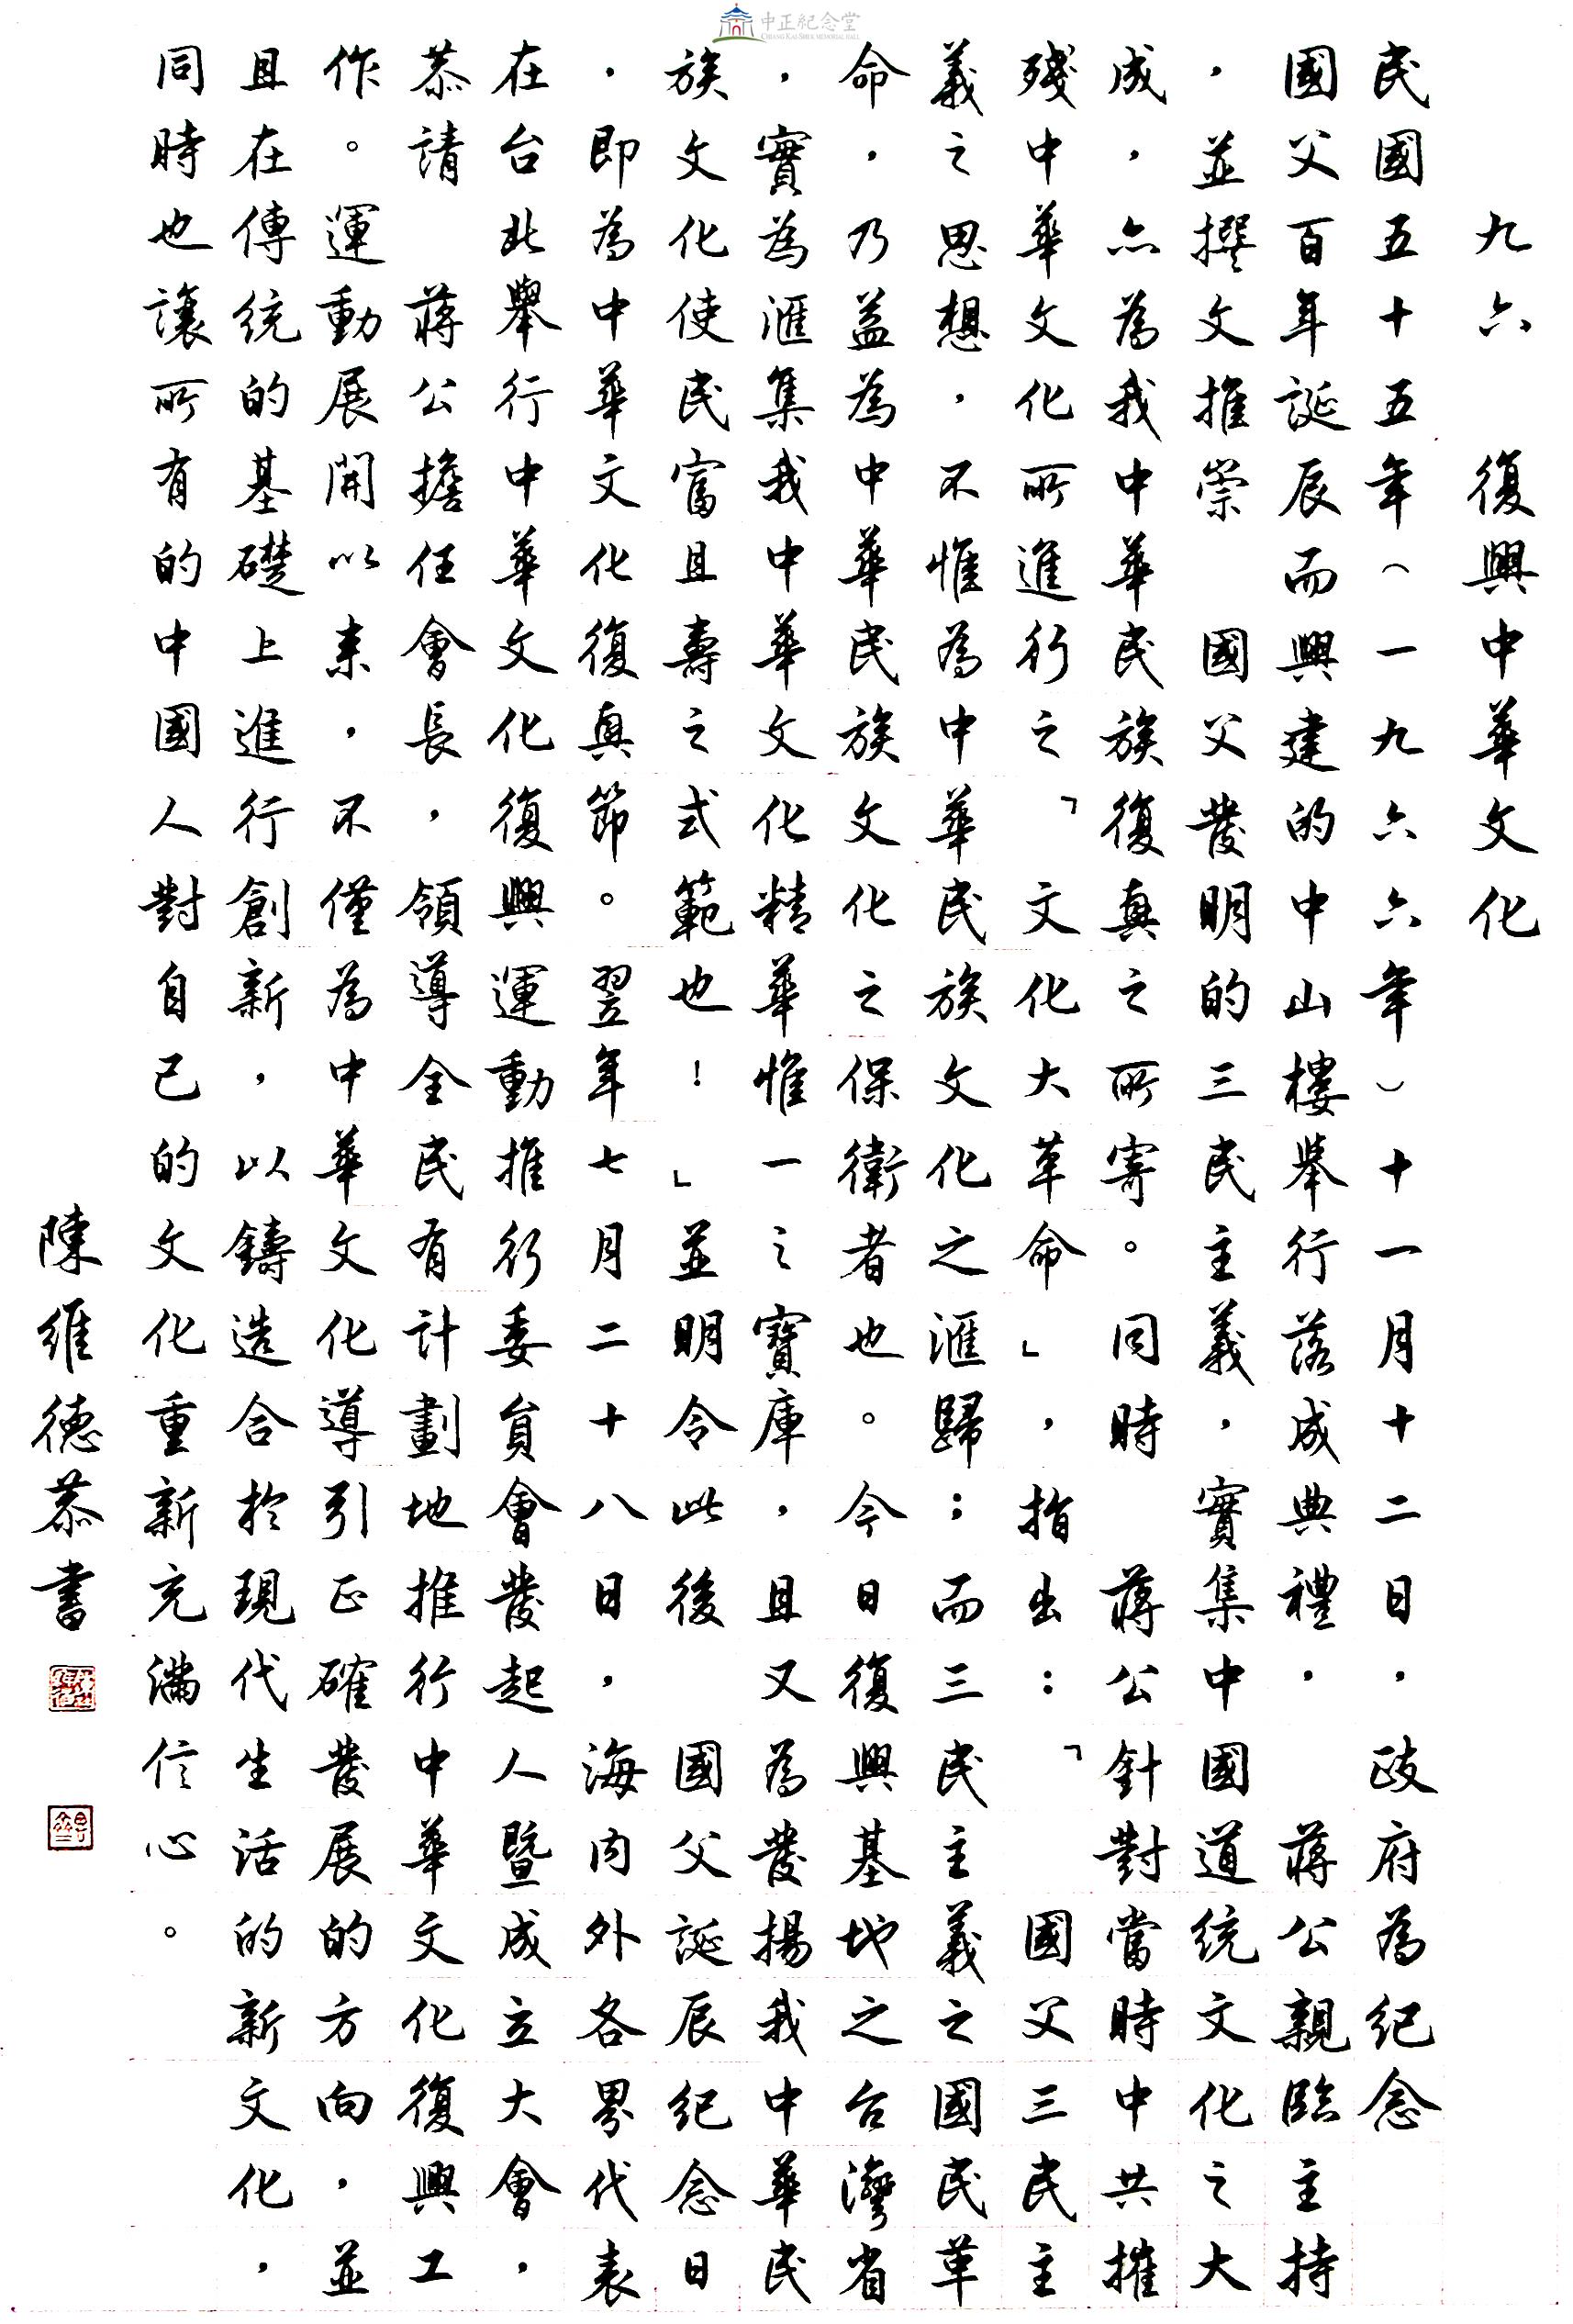 中正紀念堂
CHIANG KAI-SHEK MEMORIAL HALL
九六 復興中華文化
民國五十五年(一九六六年)十一月十二日,政府為紀念
國父百年誕辰而興建的中山樓舉行落成典禮, 蔣公親臨主持
,並撰文推崇 國父發明的三民主義,實集中國道統文化之大
成,亦為我中華民族復真之所寄。同時 蔣公針對當時中共摧
殘中華文化所進行之「文化大革命」,指出:「 國父三民主
義之思想,不惟為中華民族文化之滙歸;而三民主義之國民革
命,乃益為中華民族文化之保衛者也。今日復興基地之台灣省
,實為滙集我中華文化精華惟一之寶庫,且又為發揚我中華民
族文化使民富且壽之式範也!」並明令此後 國父誕辰紀念日
,即為中華文化復真節。翌年七月二十八日,海內外各界代表
在台北舉行中華文化復興運動推行委員會發起人暨成立大會,
恭請 蔣公擔任會長,領導全民有計劃地推行中華文化復興工
作。運動展開以來,不僅為中華文化導引正確發展的方向,並
且在傳統的基礎上進行創新,以鑄造合於現代生活的新文化,
同時也讓所有的中國人對自己的文化重新充滿信心。
陳維德恭書